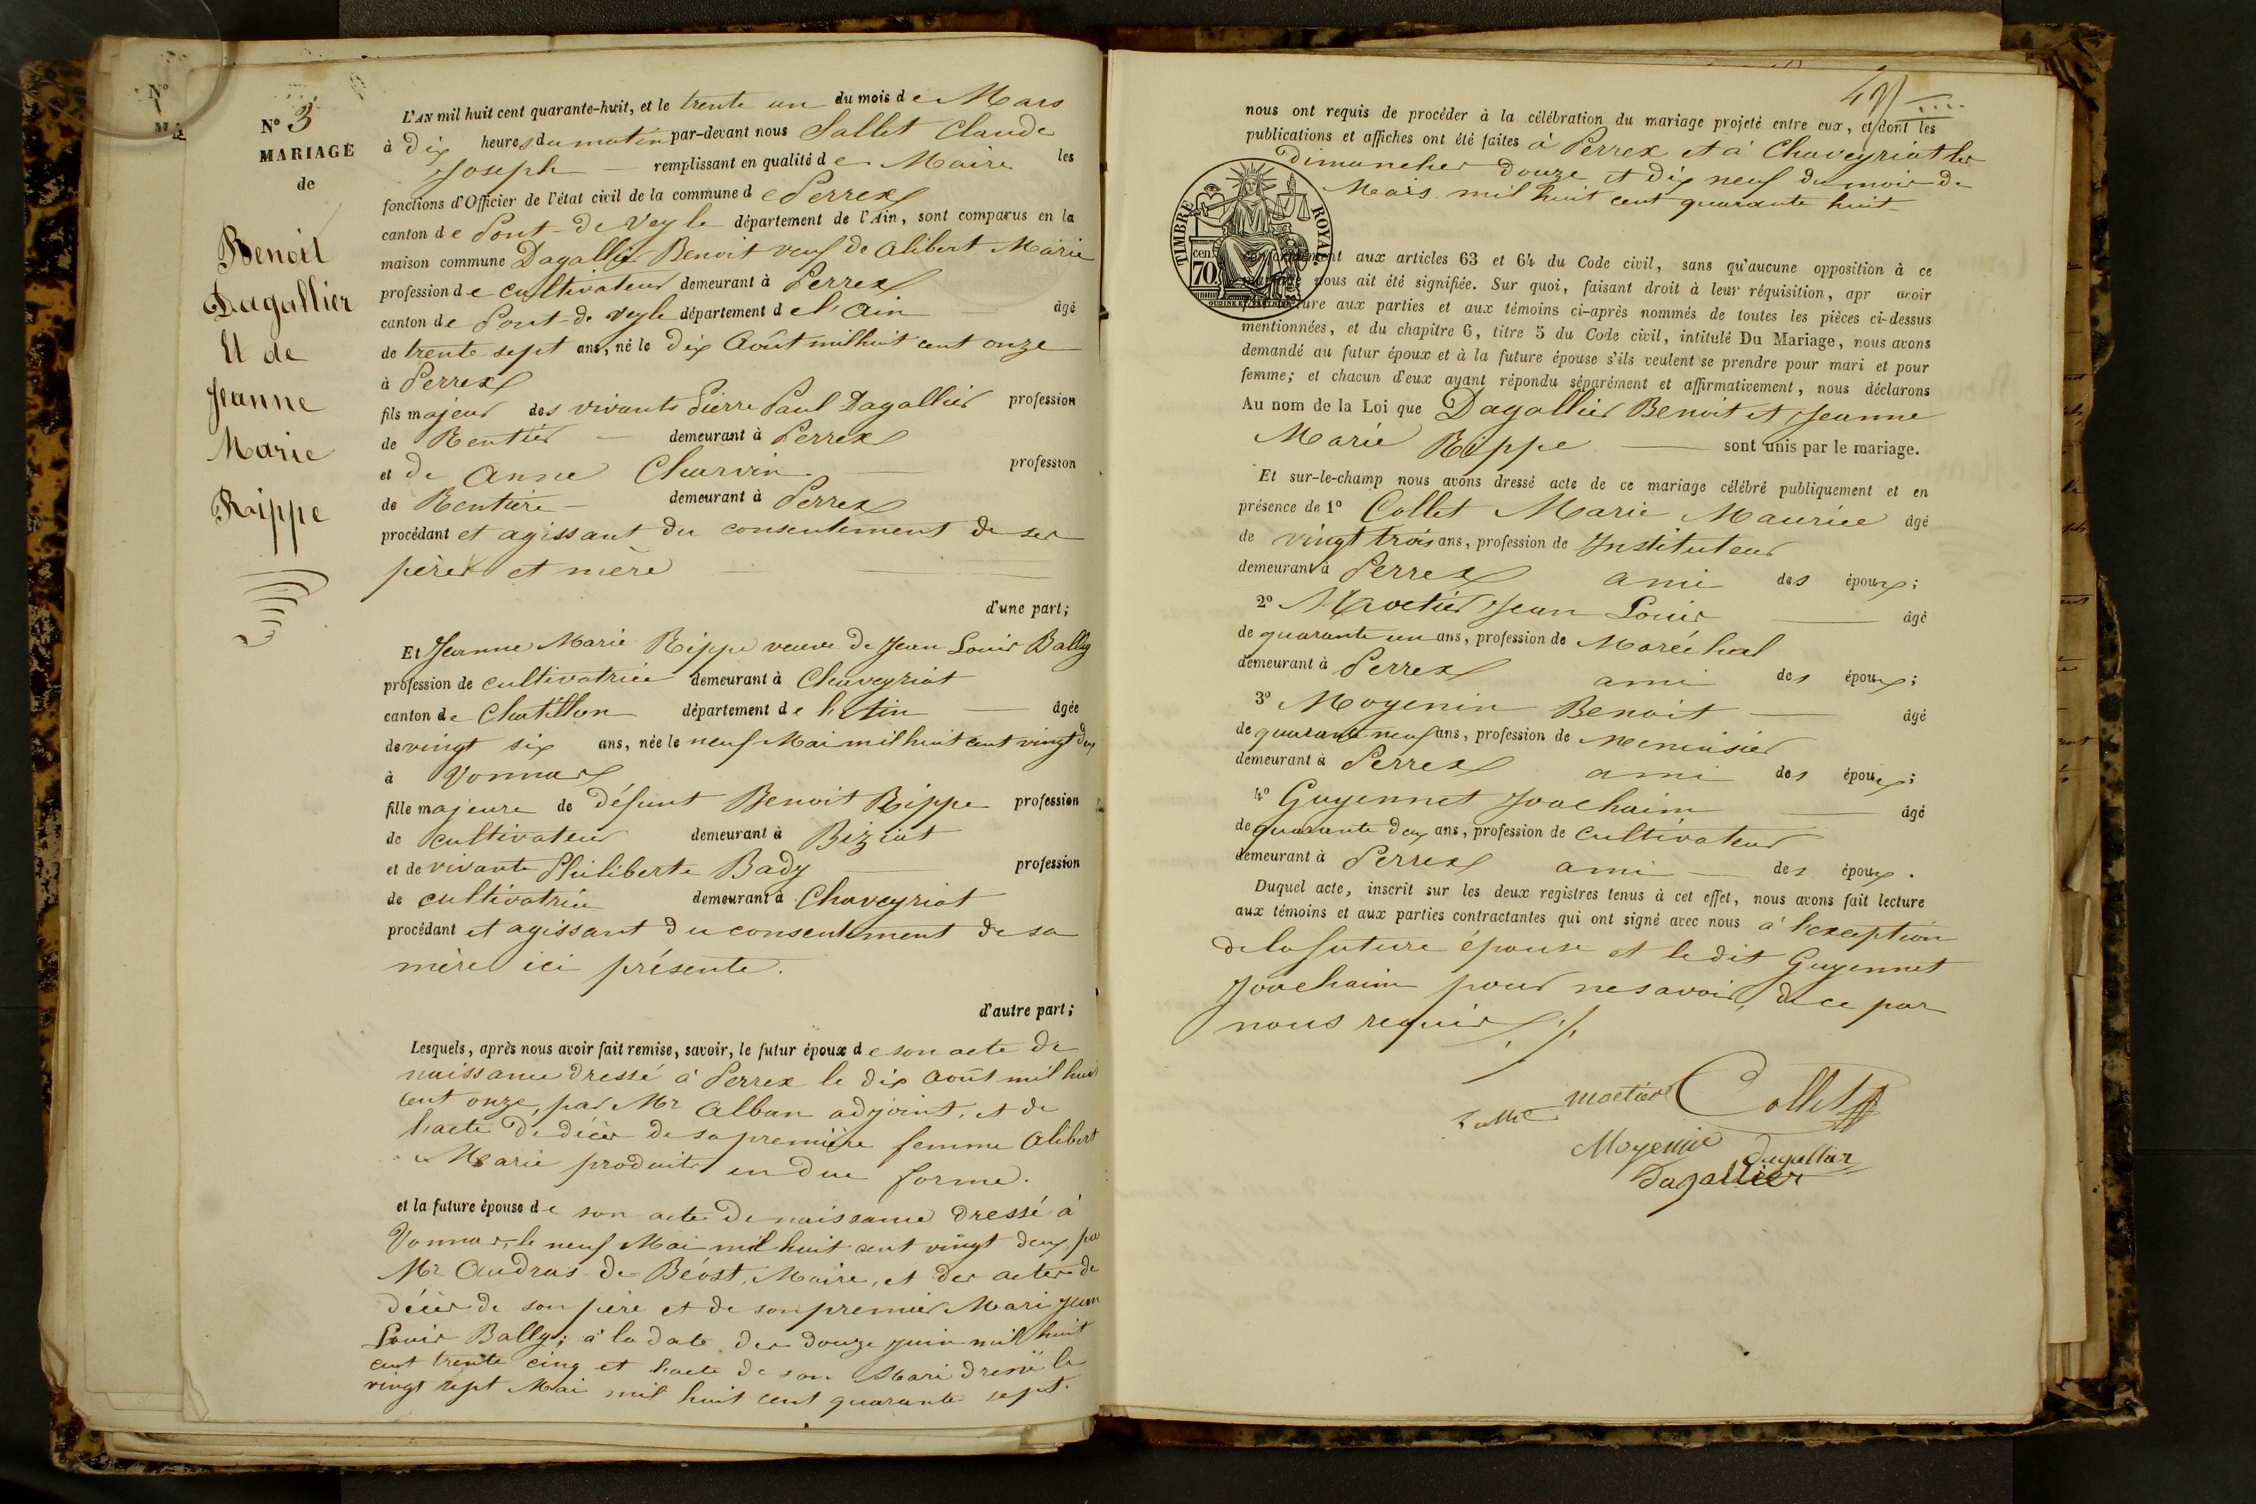 N° 3
MARIAGE
de
Benoit
Dagallier
Et de
Jeanne
Marie
Rippe
L'AN mil huit cent quarante-huit, et le trente un du mois de Mars
à dix heures du matin par-devant nous Sallet Claude
Joseph remplissant en qualité de Maire les
fonctions d'Officier de l'état civil de la commune de Perrex
canton de Pont-de-Veyle département de l'Ain, sont comparus en la
maison commune Dagallier Benoit veuf de Alibert Marie
profession de cultivateur demeurant à Perrex
canton de Pont-de-Veyle département de l'Ain âgé
de trente sept ans, né le dix Août mil huit cent onze
à Perrex
fils majeur des vivants Pierre Paul Dagallier profession
de Rentier demeurant à Perrex
et de Anne Charvin profession
de Rentière demeurant à Perrex
procédant et agissant du consentement de ses
père et mère
d'une part;
Et Jeanne Marie Rippe veuve de Jean Louis Bally
profession de cultivatrice demeurant à Chaveyriat
canton de Chatillon département de l'Ain âgée
de vingt six ans, née le neuf Mai mil huit cent vingt deux
à Vonnas
fille majeure de défunt Benoit Rippe profession
de cultivateur demeurant à Biziat
et de vivante Philiberte Bady profession
de cultivatrice demeurant à Chaveyriat
procédant et agissant du consentement de sa
mère ici présente.
d'autre part;
Lesquels, après nous avoir fait remise, savoir, le futur époux de son acte de
naissance dressé à Perrex le dix Août mil huit
cent onze, par Mr Alban adjoint, et de
l'acte de décès de sa première femme Alibert
Marie produits en due forme.
et la future épouse de son acte de naissance dressé à
Vonnas, le neuf Mai mil huit cent vingt deux par
Mr Audras de Béost, Maire, et des actes de
décès de son père et de son premier Mari Jean
Louis Bally; à la date des douze Juin mil huit
cent trente cinq et l'acte de son Mari dressé le
vingt sept Mai mil huit cent quarante sept.
nous ont requis de procéder à la célébration du mariage projeté entre eux, et dont les
publications et affiches ont été faites à Perrex et à Chaveyriat les
dimanches douze et dix neuf du mois de
Mars mil huit cent quarante huit
TIMBRE ROYAL
70 cen.
aux articles 63 et 64 du Code civil, sans qu'aucune opposition à ce
mariage nous ait été signifiée. Sur quoi, faisant droit à leur réquisition, apr avoir
lecture aux parties et aux témoins ci-après nommés de toutes les pièces ci-dessus
mentionnées, et du chapitre 6, titre 5 du Code civil, intitulé Du Mariage, nous avons
demandé au futur époux et à la future épouse s'ils veulent se prendre pour mari et pour
femme; et chacun d'eux ayant répondu séparément et affirmativement, nous déclarons
Au nom de la Loi que Dagallier Benoit et Jeanne
Marie Rippe sont unis par le mariage.
Et sur-le-champ nous avons dressé acte de ce mariage célébré publiquement et en
présence de 1° Collet Marie Maurice âgé
de vingt trois ans, profession de Instituteur
demeurant à Perrex ami des époux;
2° Moctier Jean Louis âgé
de quarante un ans, profession de Maréchal
demeurant à Perrex ami des époux;
3° Moyenin Benoit âgé
de quarante neuf ans, profession de Menuisier
demeurant à Perrex ami des époux;
4° Guyennet Joachaim âgé
de quarante deux ans, profession de cultivateur
demeurant à Perrex ami des époux.
Duquel acte, inscrit sur les deux registres tenus à cet effet, nous avons fait lecture
aux témoins et aux parties contractantes qui ont signé avec nous à l'exception
de la future épouse et le dit Guyennet
Joachaim pour ne savoir, de ce par
nous requis
moctier Collet
Moyenin dagallier
Dagallier